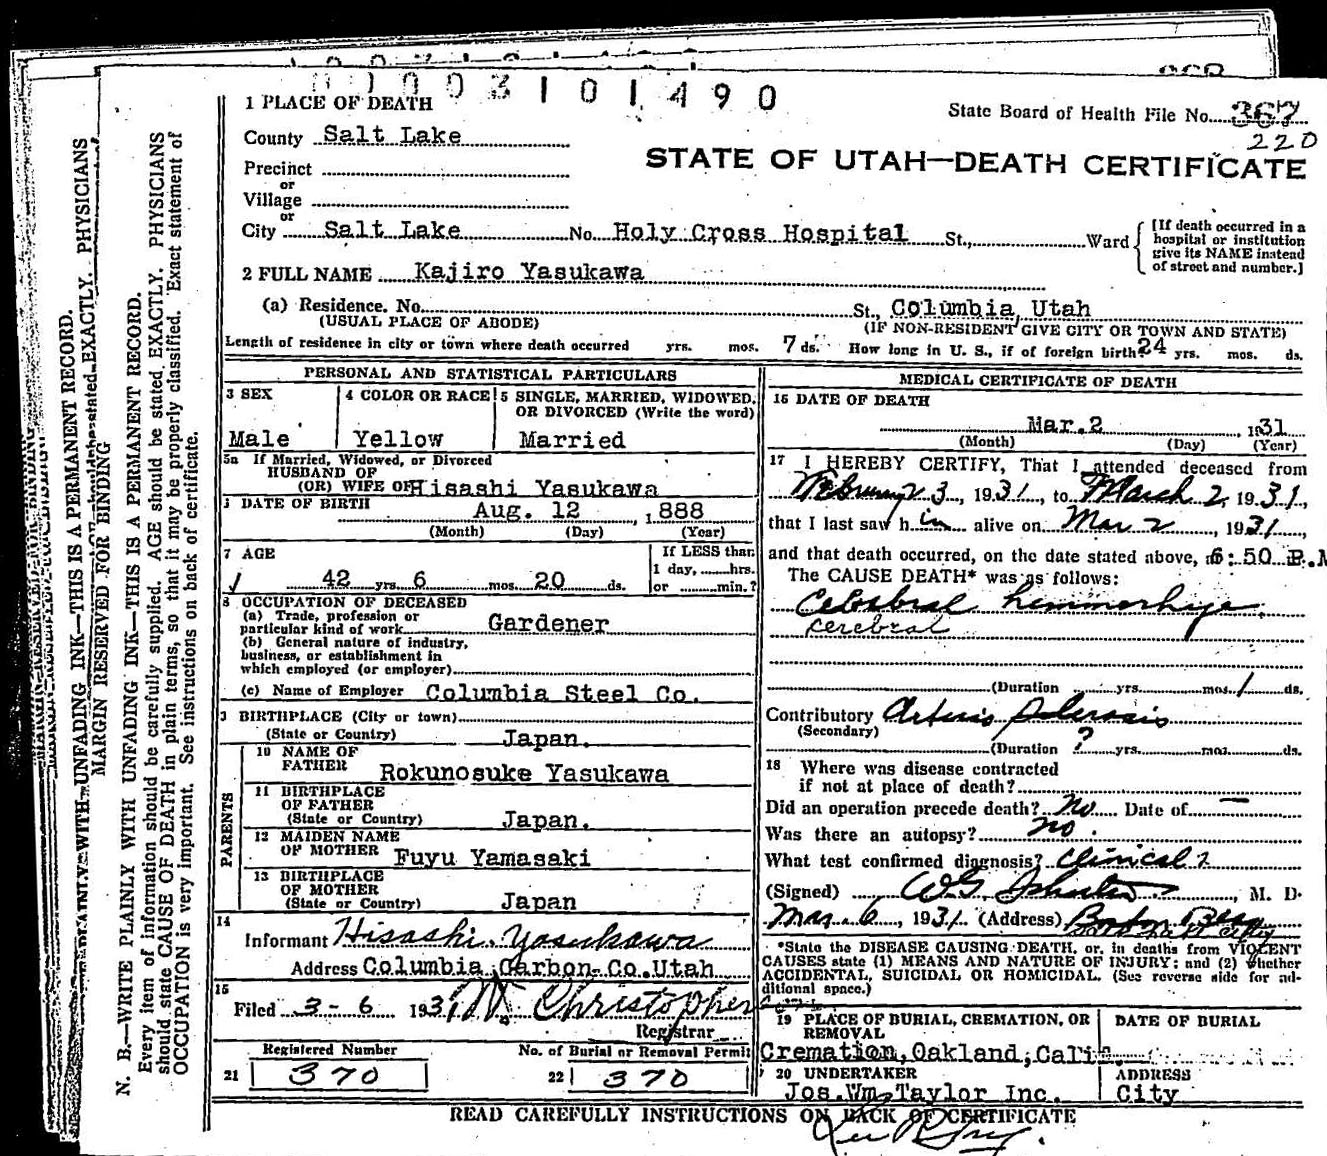 01003101490
1 PLACE OF DEATH
State Board of Health File No. 367
220
County Salt Lake
STATE OF UTAH—DEATH CERTIFICATE
Precinct
or
Village
or
City Salt Lake No. Holy Cross Hospital St., Ward
[If death occurred in a hospital or institution give its NAME instead of street and number.]
2 FULL NAME Kajiro Yasukawa
(a) Residence. No. St., Columbia, Utah
(USUAL PLACE OF ABODE) (IF NON-RESIDENT GIVE CITY OR TOWN AND STATE)
Length of residence in city or town where death occurred yrs. mos. 7 ds. How long in U. S., if of foreign birth? 24 yrs. mos. ds.
PERSONAL AND STATISTICAL PARTICULARS
3 SEX
Male
4 COLOR OR RACE
Yellow
5 SINGLE, MARRIED, WIDOWED, OR DIVORCED (Write the word)
Married
5a If Married, Widowed, or Divorced
HUSBAND OF
(OR) WIFE OF Hisashi Yasukawa
DATE OF BIRTH Aug. 12, 1888
(Month) (Day) (Year)
7 AGE
42 yrs 6 mos. 20 ds.
If LESS than
1 day, hrs.
or min.?
8 OCCUPATION OF DECEASED
(a) Trade, profession or
particular kind of work Gardener
(b) General nature of industry,
business, or establishment in
which employed (or employer)
(c) Name of Employer Columbia Steel Co.
BIRTHPLACE (City or town)
(State or Country) Japan.
PARENTS
10 NAME OF
FATHER Rokunosuke Yasukawa
11 BIRTHPLACE
OF FATHER
(State or Country) Japan.
12 MAIDEN NAME
OF MOTHER Fuyu Yamasaki
13 BIRTHPLACE
OF MOTHER
(State or Country) Japan
14
Informant Hisashi Yasukawa
Address Columbia, Carbon Co. Utah
15
Filed 3-6 1931 M. Christopherson
Registrar
Registered Number
21 370
No. of Burial or Removal Permit
22 370
MEDICAL CERTIFICATE OF DEATH
16 DATE OF DEATH
Mar. 2, 1931
(Month) (Day) (Year)
17 I HEREBY CERTIFY, That I attended deceased from
February 23, 1931, to March 2, 1931,
that I last saw h im alive on Mar 2, 1931,
and that death occurred, on the date stated above, at 6:50 P.M
The CAUSE DEATH* was as follows:
Celebral hemmorhage
cerebral
(Duration yrs. mos. 1 ds.
Contributory Arterio sclerosis
(Secondary)
(Duration ? yrs. mos. ds.
18 Where was disease contracted
if not at place of death?
Did an operation precede death? No Date of —
Was there an autopsy? no.
What test confirmed diagnosis? Clinical
(Signed) M. D.
Mar. 6, 1931 (Address) Boston Bldg
*State the DISEASE CAUSING DEATH, or, in deaths from VIOLENT
CAUSES state (1) MEANS AND NATURE OF INJURY; and (2) whether
ACCIDENTAL, SUICIDAL OR HOMICIDAL. (See reverse side for additional space.)
19 PLACE OF BURIAL, CREMATION, OR REMOVAL
Cremation, Oakland, Calif.
DATE OF BURIAL
20 UNDERTAKER
Jos. Wm. Taylor Inc.
ADDRESS
City
READ CAREFULLY INSTRUCTIONS ON BACK OF CERTIFICATE
MARGIN RESERVED FOR BINDING
N. B.—WRITE PLAINLY WITH UNFADING INK—THIS IS A PERMANENT RECORD.
Every item of information should be carefully supplied. AGE should be stated EXACTLY. PHYSICIANS
should state CAUSE OF DEATH in plain terms, so that it may be properly classified. Exact statement of
OCCUPATION is very important. See instructions on back of certificate.